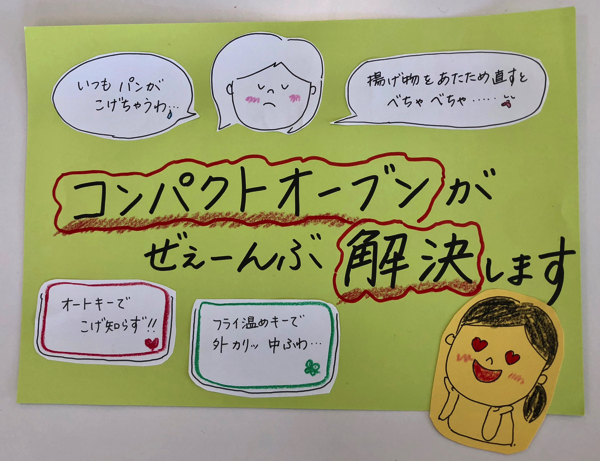 いつも パンが
こげちゃうわ…
揚げ物を あたため直すと
べちゃ べちゃ……
コンパクトオーブンが
ぜぇーんぶ 解決します
オートキーで
こげ知らず!!
フライ温めキーで
外カリッ 中ふわ…